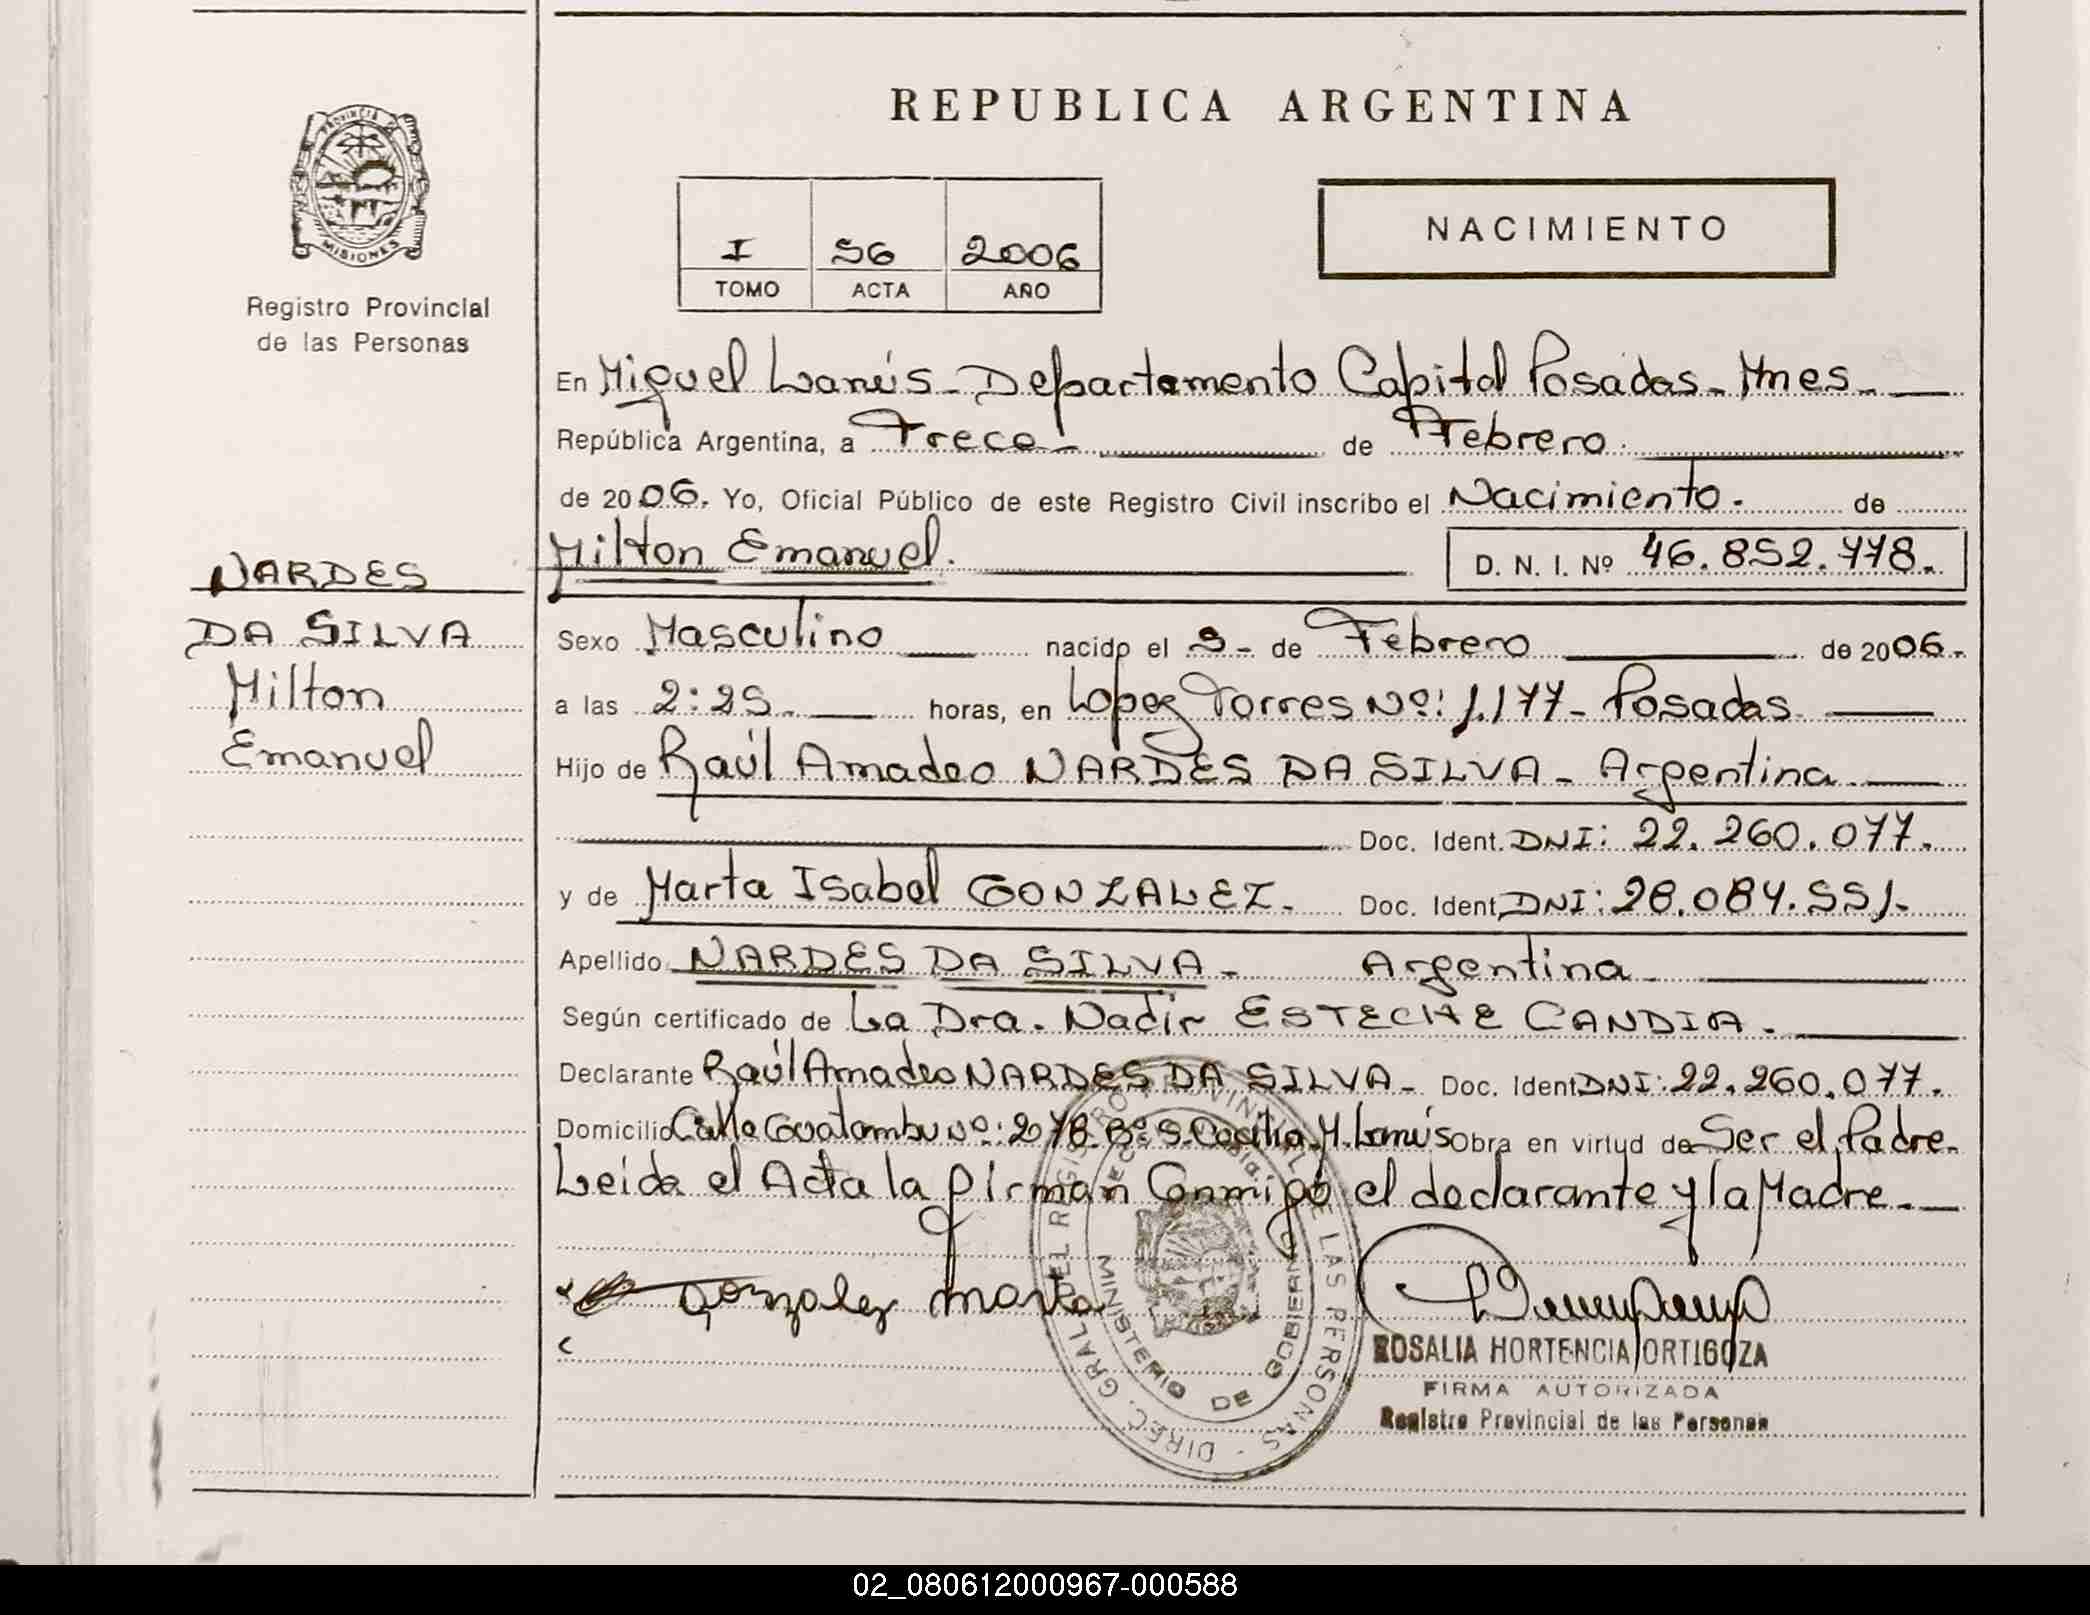 REPUBLICA ARGENTINA
PROVINCIA DE
MISIONES
Registro Provincial
de las Personas
I 56 2006
TOMO ACTA AÑO
NACIMIENTO
En Miguel Lanús - Departamento Capital Posadas - Mnes. -
República Argentina, a Trece de Febrero.
de 2006. Yo, Oficial Público de este Registro Civil inscribo el Nacimiento. de
Milton Emanuel. D. N. I. Nº 46.852.778.
NARDES
DA SILVA
Milton
Emanuel
Sexo Masculino nacido el 9 - de Febrero de 2006.
a las 2:25 horas, en Lopez Torres Nº: 1.177 - Posadas
Hijo de Raúl Amadeo NARDES DA SILVA - Argentina
Doc. Ident. DNI: 22.260.077.
y de Marta Isabel GONZALEZ. Doc. Ident. DNI: 28.084.551.
Apellido NARDES DA SILVA - Argentina
Según certificado de La Dra. Nadir ESTECHE CANDIA.
Declarante Raúl Amadeo NARDES DA SILVA - Doc. Ident. DNI: 22.260.077.
Domicilio Calle Guatambu Nº: 2078 Bº S. Cecilia M. Lanús Obra en virtud de Ser el Padre.
Leida el Acta la firman Conmigo el declarante y la Madre.
gonzalez marta
DIREC. GRAL. DEL REGISTRO PROVINCIAL DE LAS PERSONAS
MINISTERIO DE GOBIERNO
ROSALIA HORTENCIA ORTIGOZA
FIRMA AUTORIZADA
Registro Provincial de las Personas
02_080612000967-000588